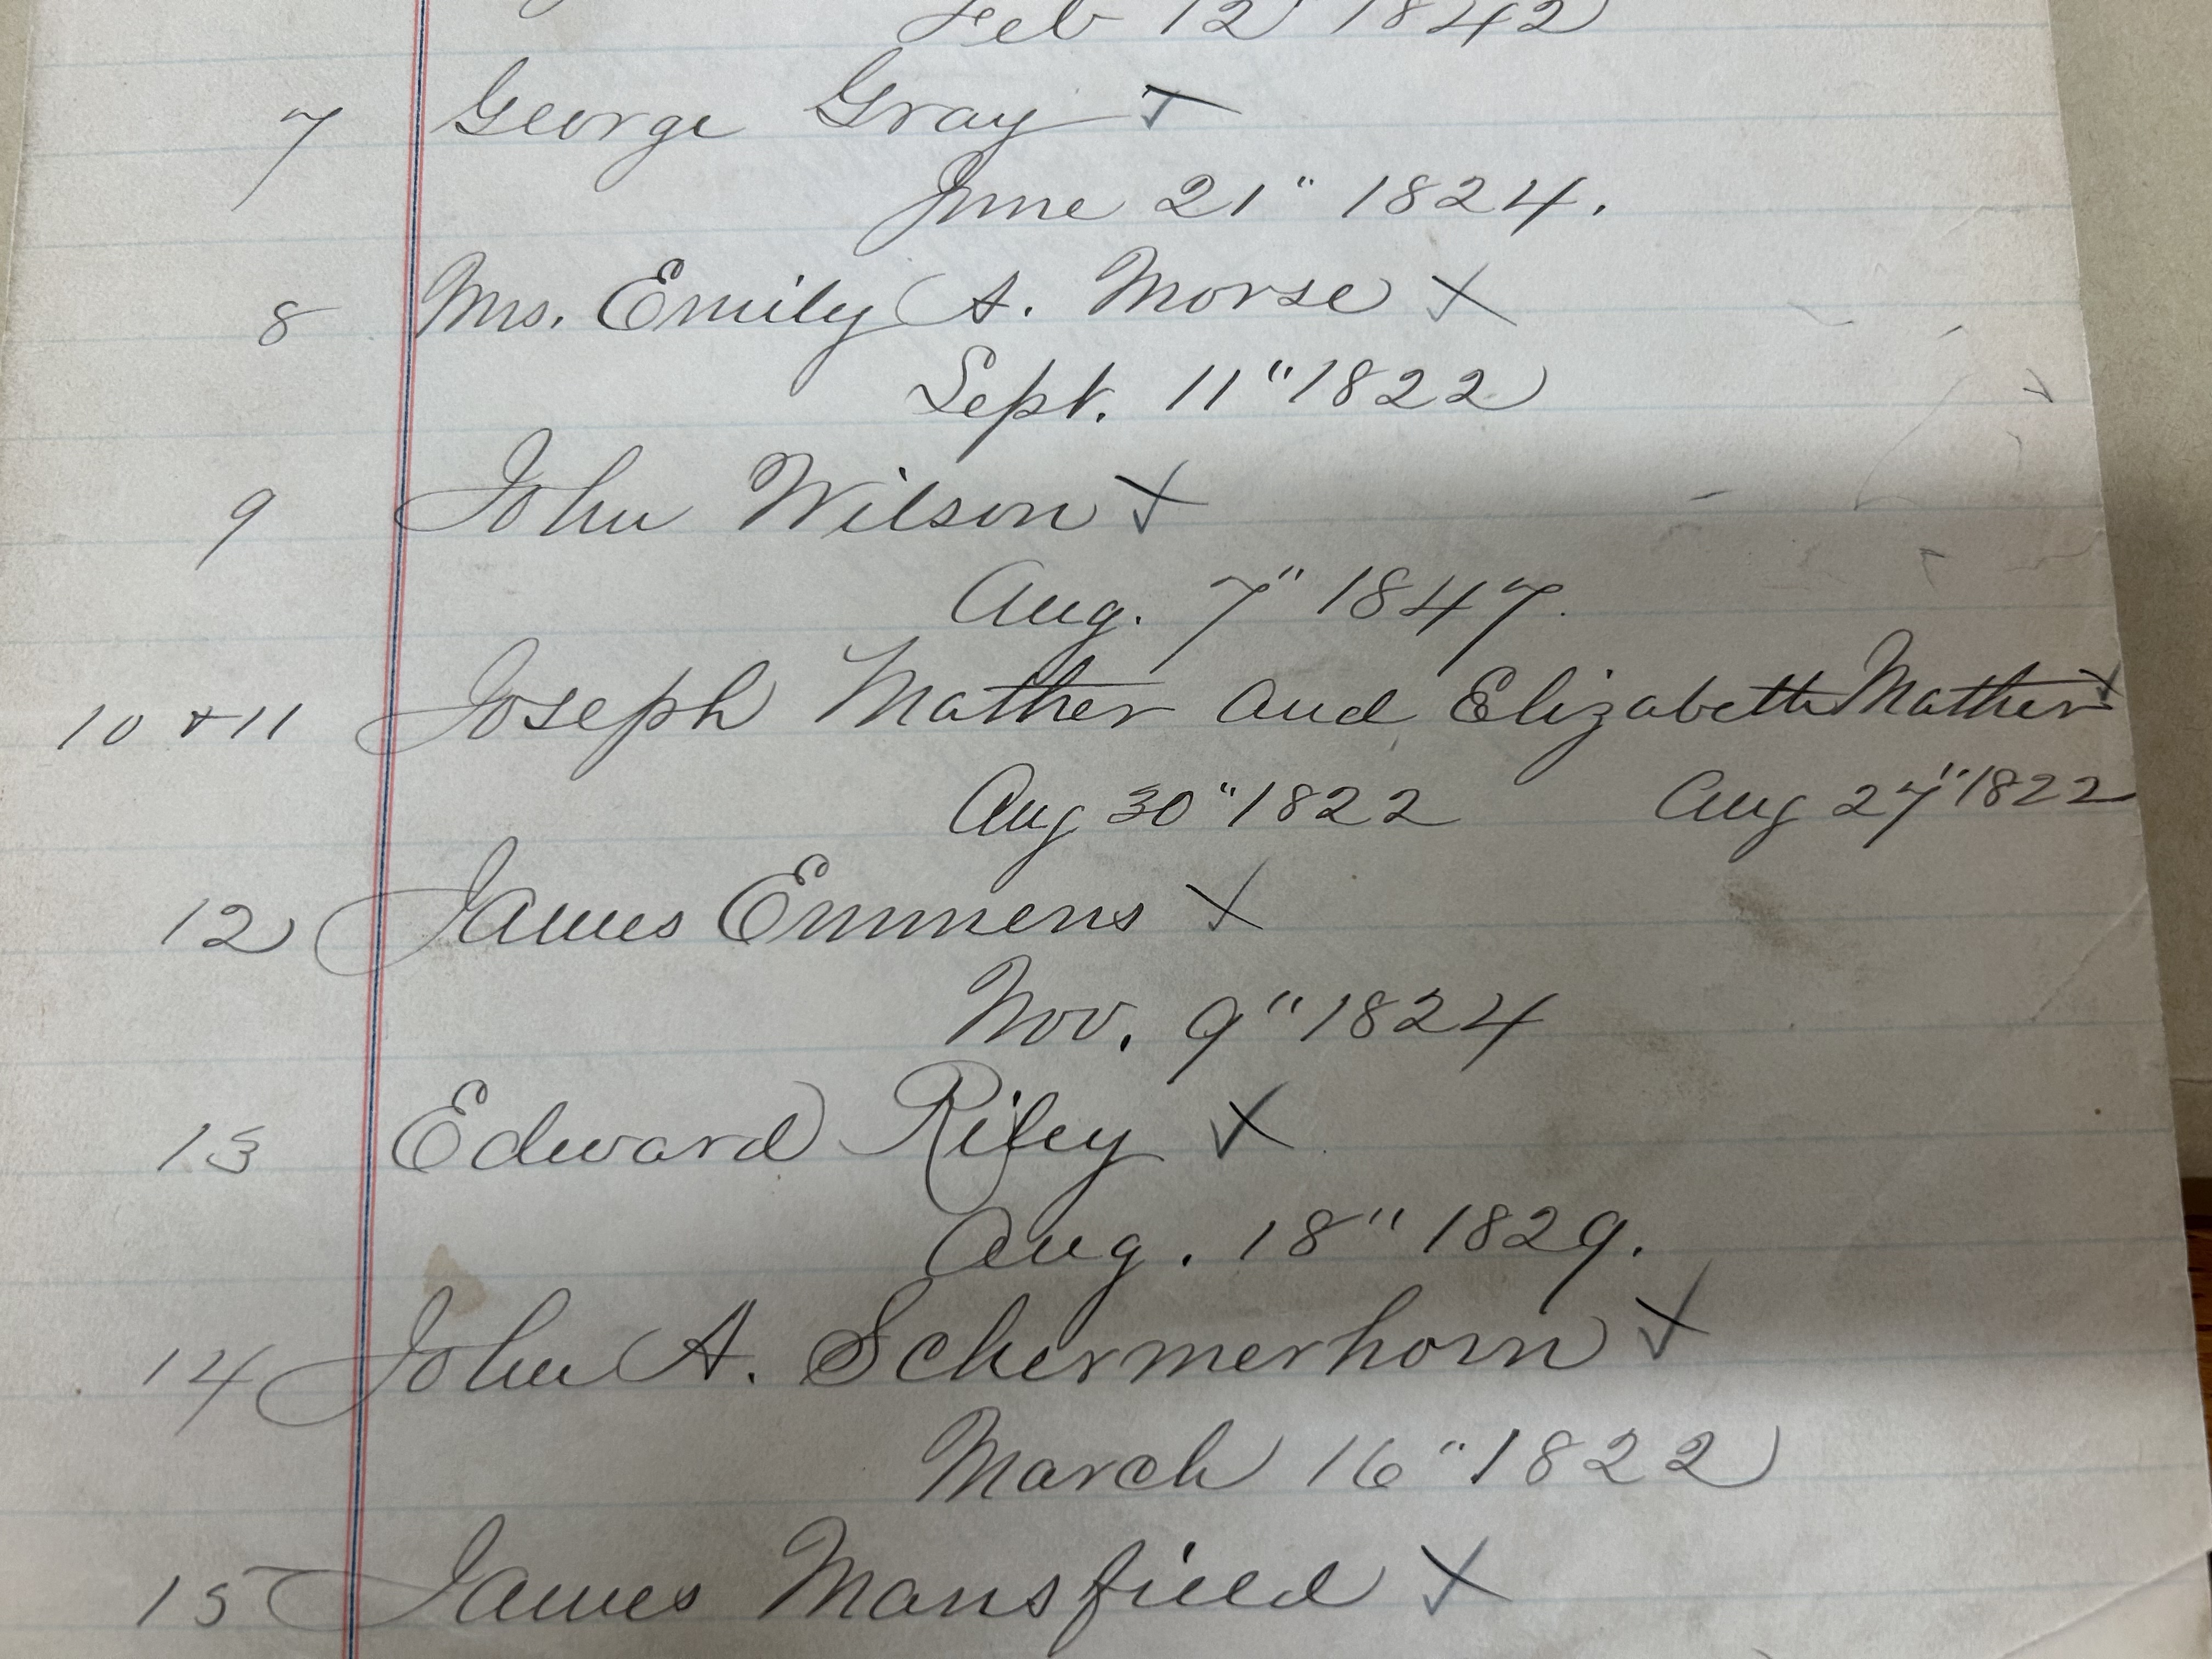 Feb 12 1842
7 George Gray
June 21" 1824.
8 Mrs. Emily A. Morse X
Sept. 11" 1822
9 John Wilson X
Aug. 7" 1847.
10 & 11 Joseph Mather and Elizabeth Mather
Aug 30" 1822 Aug 27" 1822
12 James Emmens X
Nov. 9" 1824
13 Edward Riley X
Aug. 18" 1829.
14 John A. Schermerhorn X
March 16" 1822
15 James Mansfield X